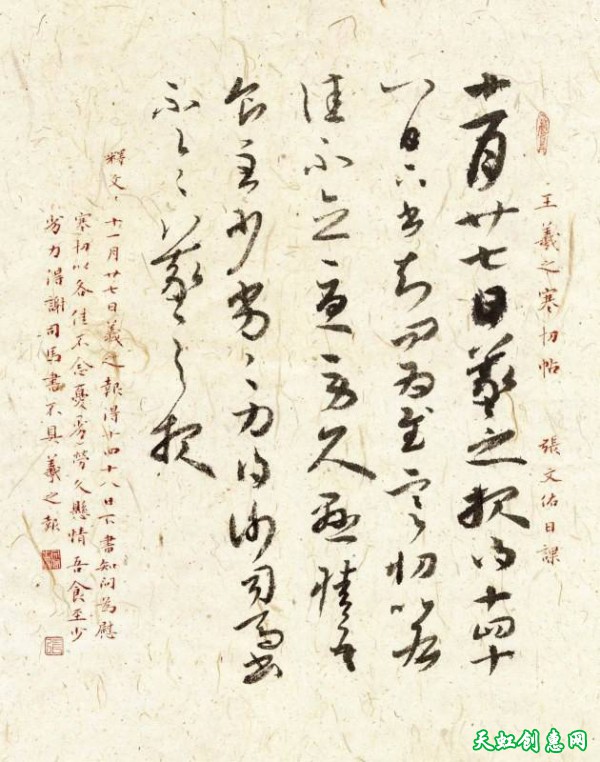 王羲之寒切帖 張文佑日課
十一月廿七日羲之報得十四十
八日二書知問為慰寒切比各
佳不念憂勞久懸情吾
食至少劣劣力因謝司馬書
不一一羲之報
釋文：十一月廿七日羲之報得十四十八日下書知問為慰
寒切以各佳不念憂勞久懸情吾食至少
劣力得謝司馬書不具羲之報
天虹创意网